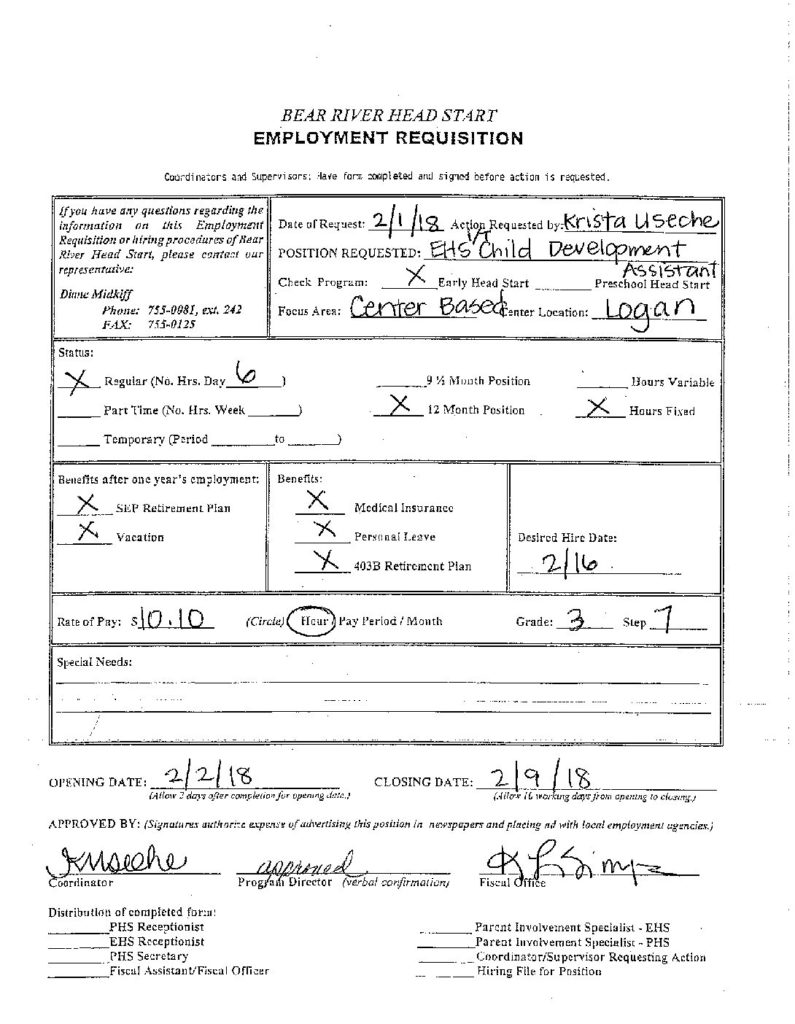 BEAR RIVER HEAD START
EMPLOYMENT REQUISITION
Coordinators and Supervisors: Have form completed and signed before action is requested.
If you have any questions regarding the
information on this Employment
Requisition or hiring procedures of Bear
River Head Start, please contact our
representative:
Diane Midkiff
Phone: 755-0081, ext. 242
FAX: 755-0125
Date of Request: 2/1/18 Action Requested by: Krista Useche
POSITION REQUESTED: EHS Child Development
Assistant
Check Program: X Early Head Start ______ Preschool Head Start
Focus Area: Center Based Center Location: Logan
Status:
X Regular (No. Hrs. Day 6 ) ______ 9 ½ Month Position ______ Hours Variable
______ Part Time (No. Hrs. Week ______) X 12 Month Position X Hours Fixed
______ Temporary (Period ______ to ______)
Benefits after one year's employment:
X SEP Retirement Plan
X Vacation
Benefits:
X Medical Insurance
X Personal Leave
X 403B Retirement Plan
Desired Hire Date:
2/16
Rate of Pay: $10.10 (Circle) Hour / Pay Period / Month Grade: 3 Step 7
Special Needs:
OPENING DATE: 2/2/18 CLOSING DATE: 2/9/18
(Allow 3 days after completion for opening date.) (Allow 10 working days from opening to closing.)
APPROVED BY: (Signatures authorize expense of advertising this position in newspapers and placing ad with local employment agencies.)
KUseche approved
Coordinator Program Director (verbal confirmation) Fiscal Office
Distribution of completed form:
______ PHS Receptionist
______ EHS Receptionist
______ PHS Secretary
______ Fiscal Assistant/Fiscal Officer
______ Parent Involvement Specialist - EHS
______ Parent Involvement Specialist - PHS
______ Coordinator/Supervisor Requesting Action
______ Hiring File for Position